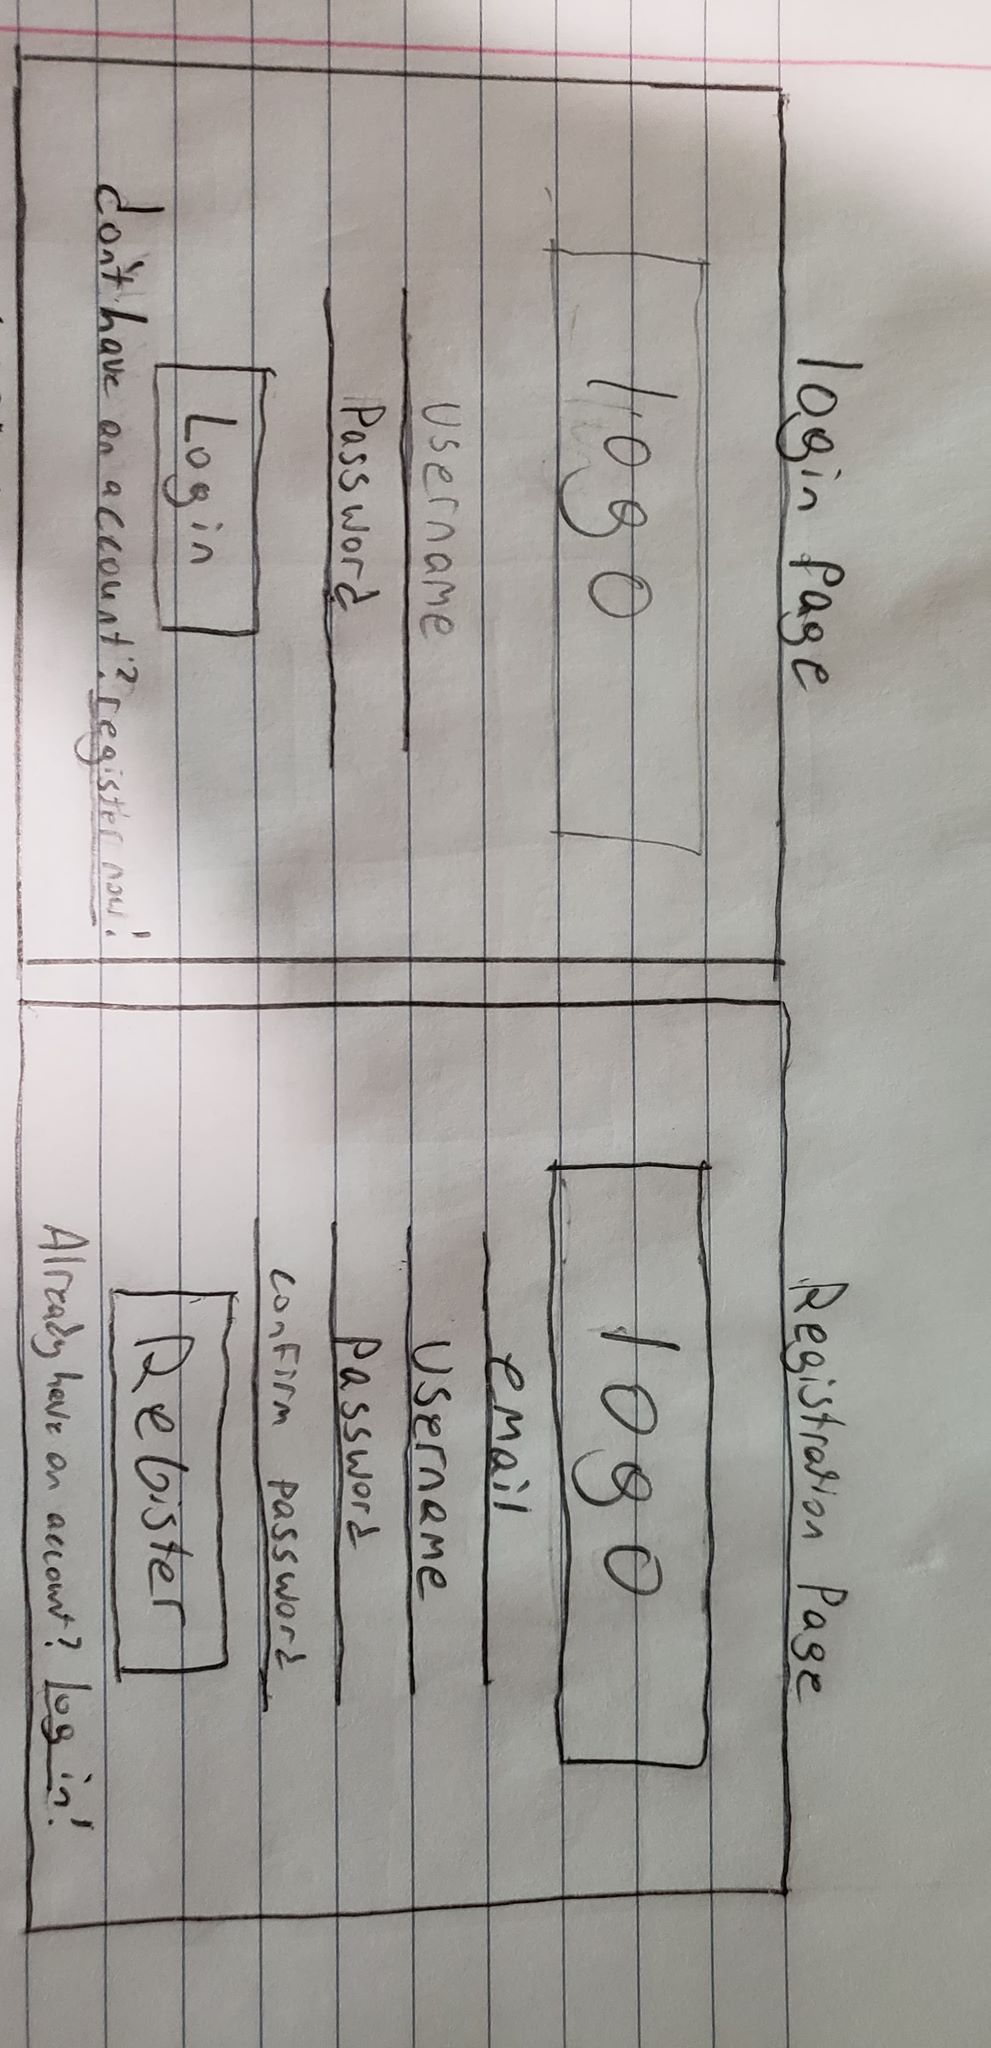 login Page
logo
Username
Password
Login
don't have an account? register now!
Registration Page
logo
email
Username
Password
confirm password
Register
Already have an account? login!